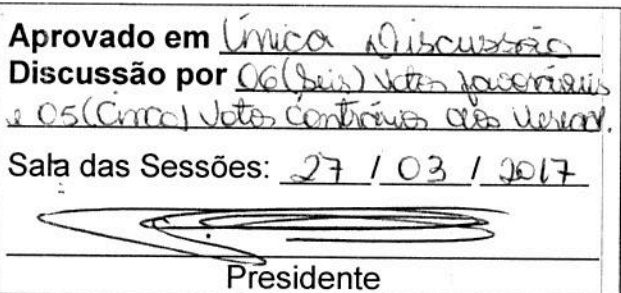 Aprovado em Única Discussão
Discussão por 06(Seis) votos favoráveis
e 05(Cinco) Votos Contrários dos Veread.
Sala das Sessões: 27 / 03 / 2017
Presidente